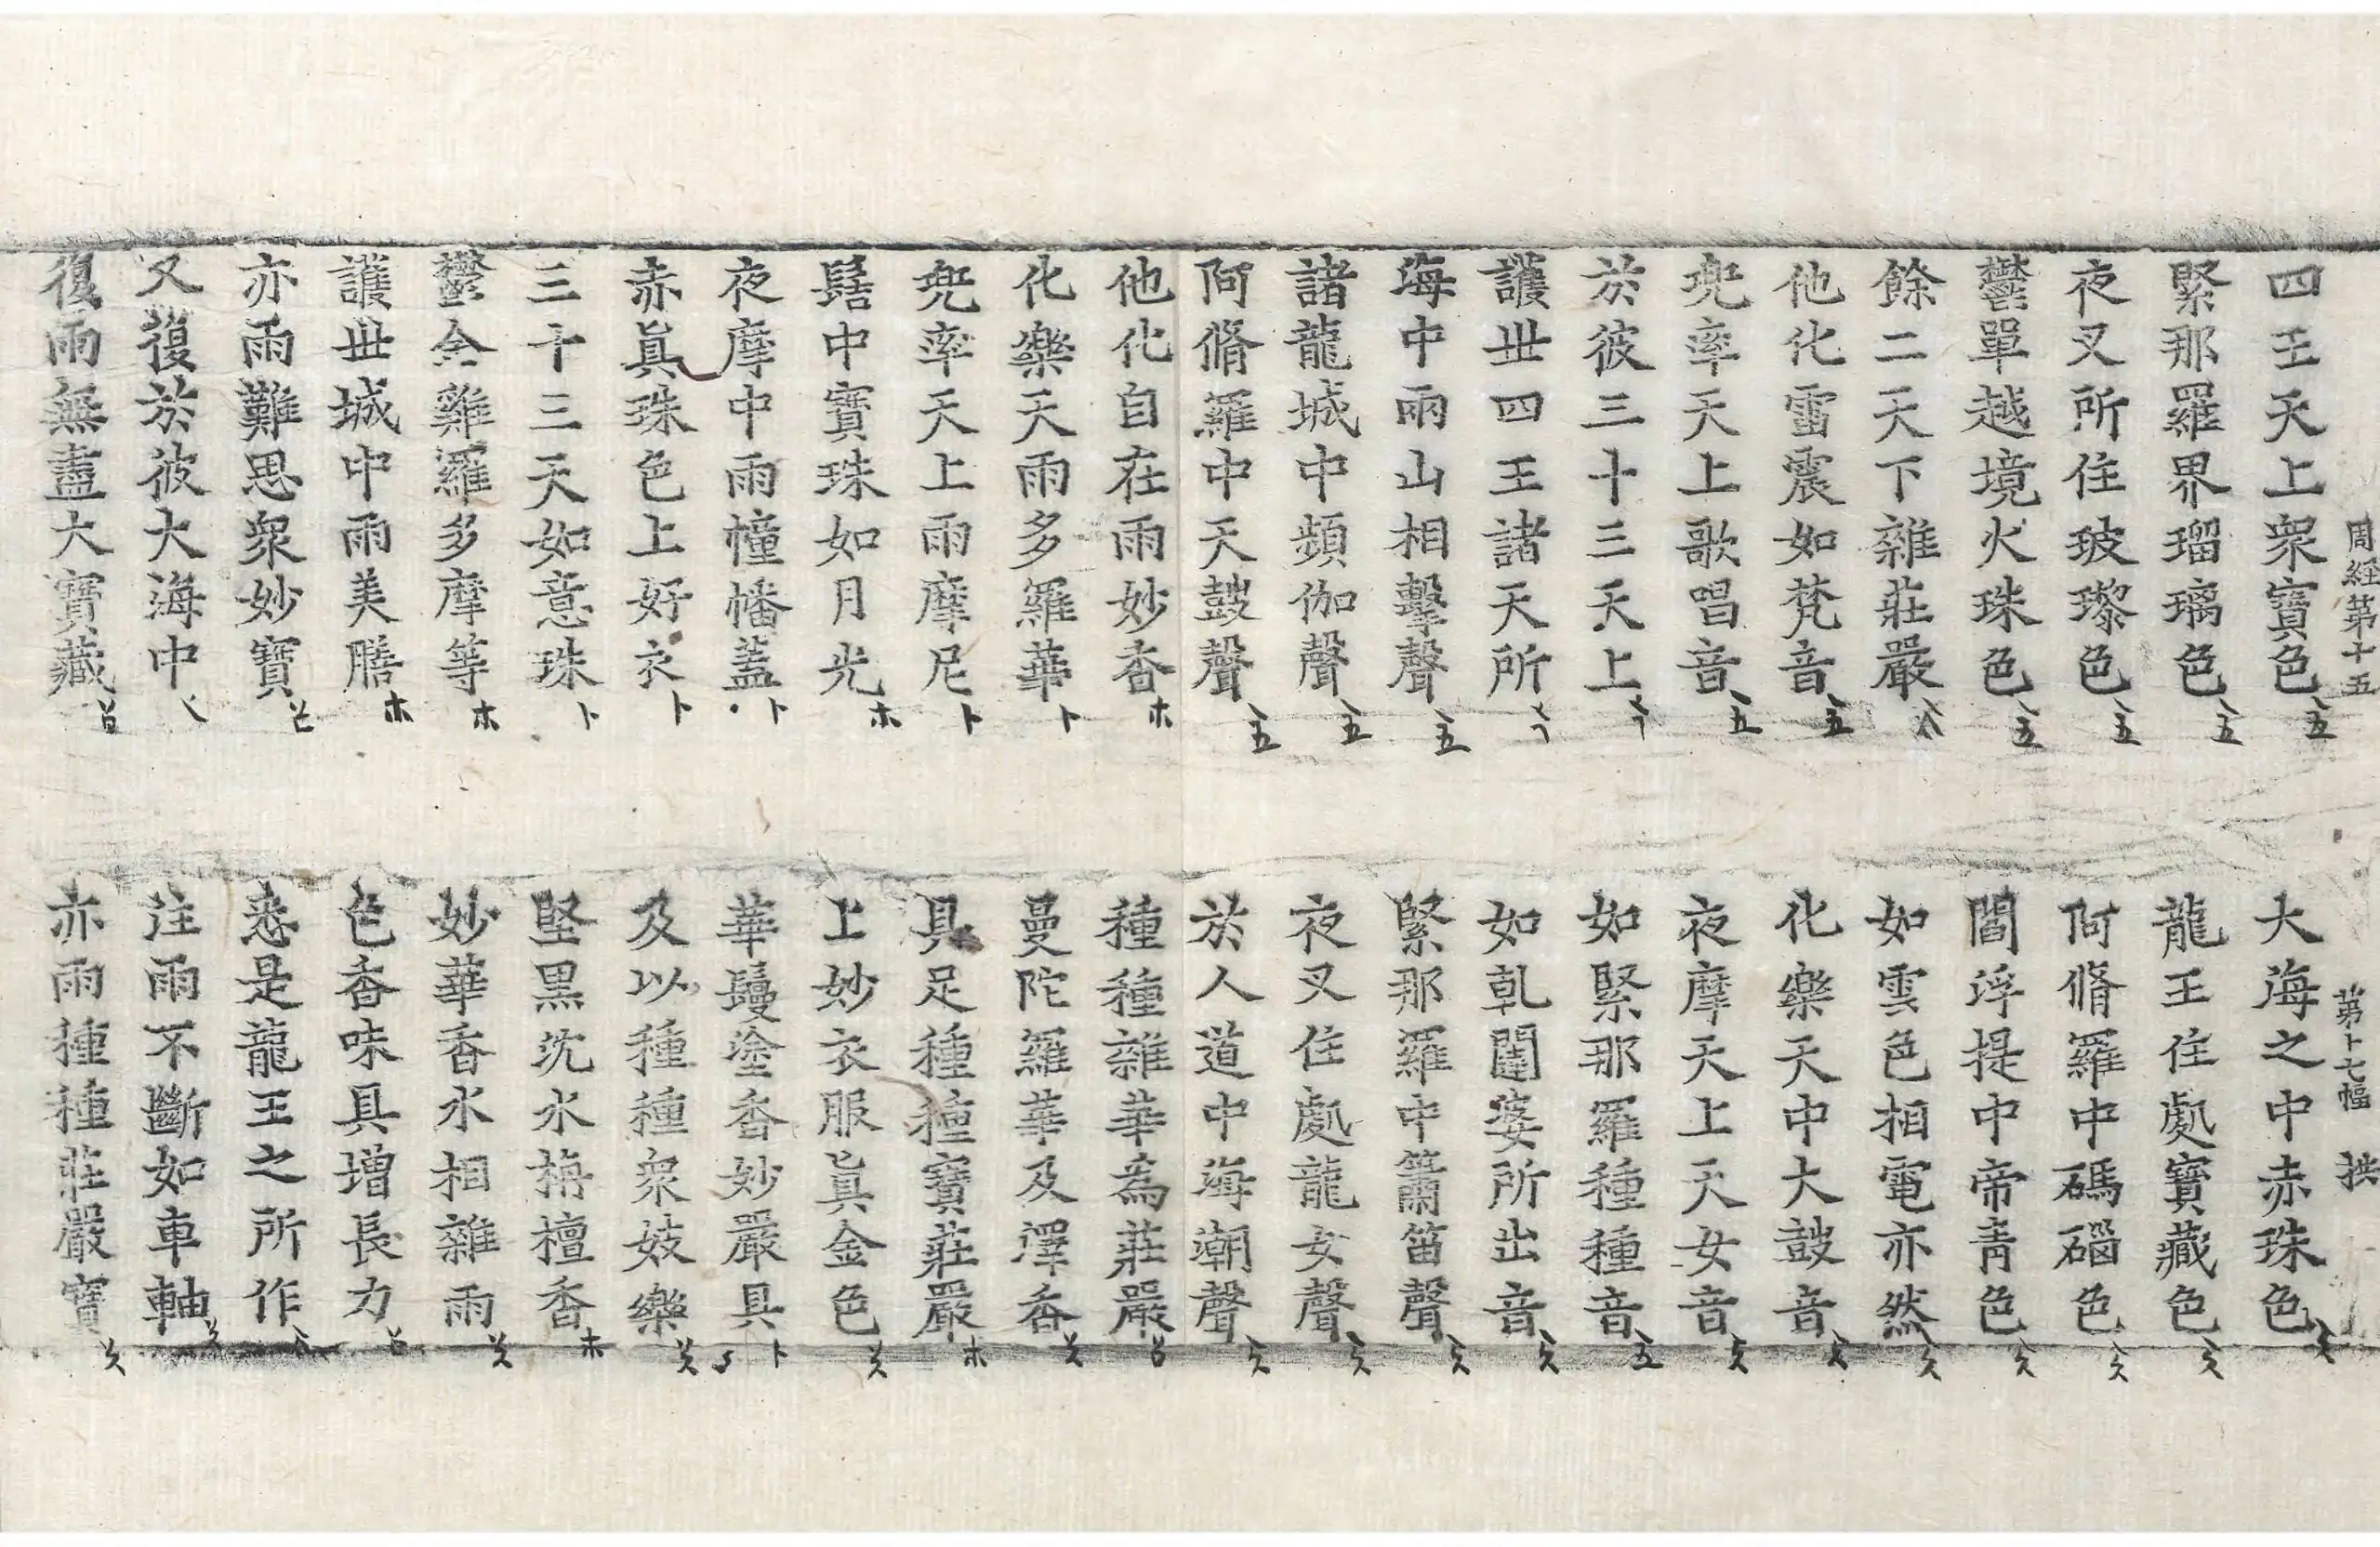 周経第十五　第十七幅　拱
四王天上衆寶色　大海之中赤珠色
緊那羅界瑠璃色　龍王住處寶藏色
夜叉所住玻瓈色　阿脩羅中碼碯色
鬱單越境火珠色　閻浮提中帝青色
餘二天下雜莊嚴　如雲色相電亦然
他化雷震如梵音　化樂天中大鼓音
兜率天上歌唱音　夜摩天上天女音
於彼三十三天上　如緊那羅種種音
護世四王諸天所　如乹闥婆所出音
海中兩山相擊聲　緊那羅中簫笛聲
諸龍城中頻伽聲　夜叉住處龍女聲
阿脩羅中天鼓聲　於人道中海潮聲
他化自在雨妙香　種種雜華為莊嚴
化樂天雨多羅華　曼陀羅華及澤香
兜率天上雨摩尼　具足種種寶莊嚴
髻中寶珠如月光　上妙衣服真金色
夜摩中雨幢幡蓋　華鬘塗香妙嚴具
赤真珠色上好衣　及以種種衆妓樂
三十三天如意珠　堅黒沈水栴檀香
鬱金雞羅多摩等　妙華香水相雜雨
護世城中雨美膳　色香味具增長力
亦雨難思衆妙寶　悉是龍王之所作
又復於彼大海中　注雨不斷如車軸
復雨無盡大寶藏　亦雨種種莊嚴寶